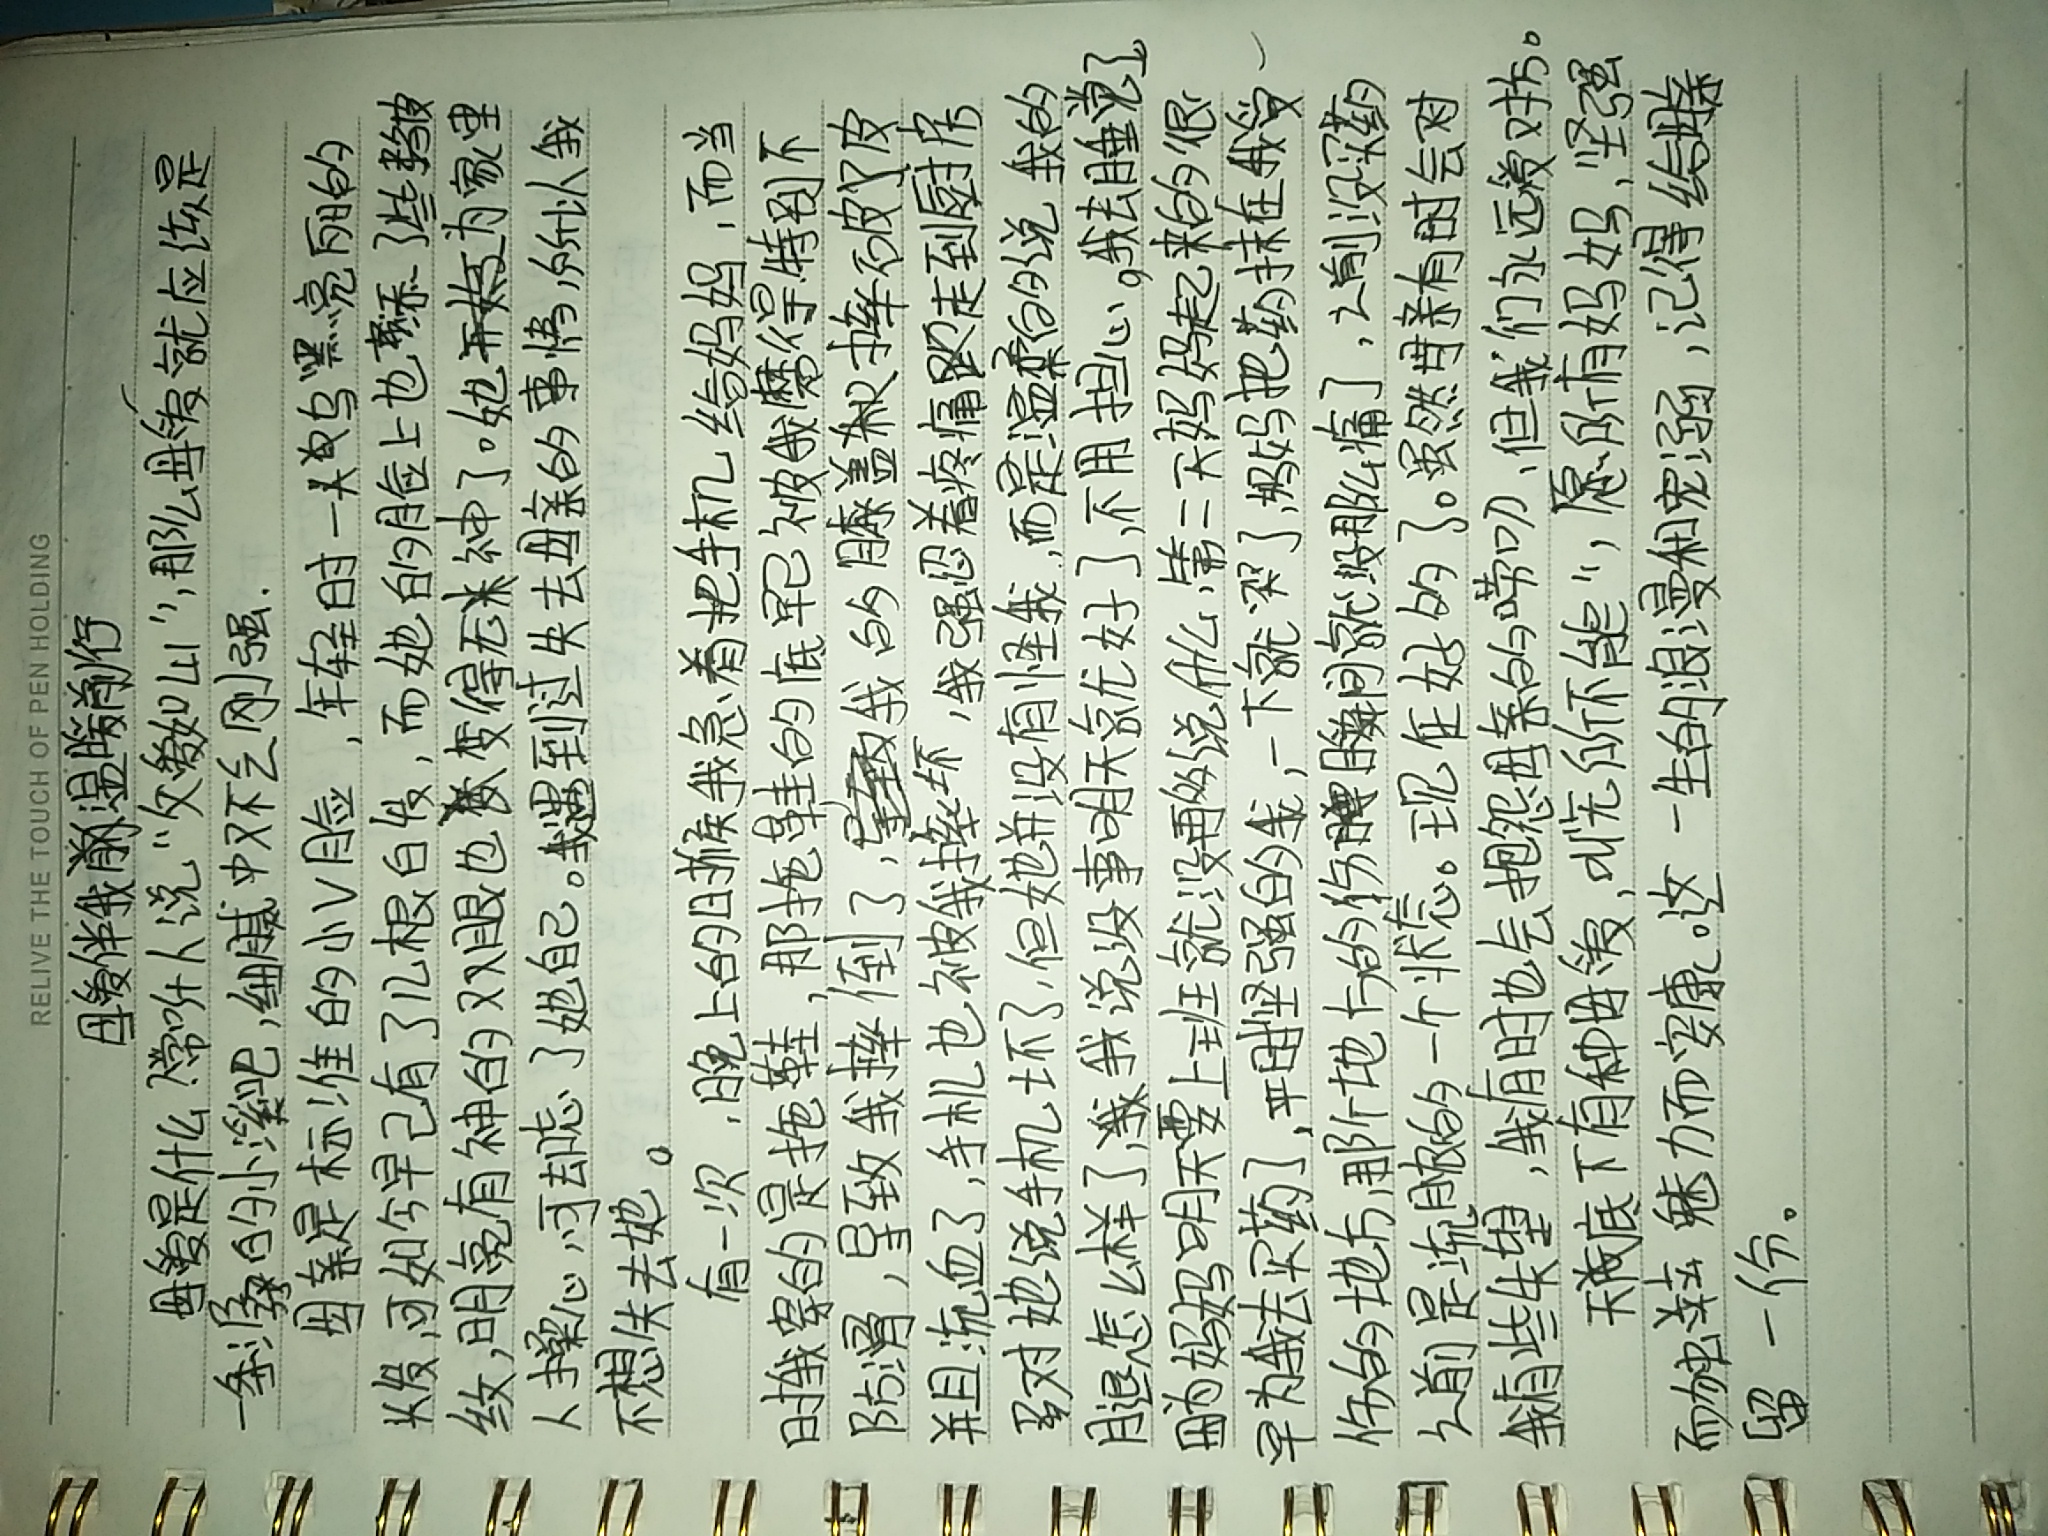 RELIVE THE TOUCH OF PEN HOLDING
母爱伴我前温暖前行
母爱是什么?常听人说“父爱如山”,那么母爱就应该是
一条潺潺的小溪吧,细腻中又不乏刚强.
母亲是标准的小V脸,年轻时一头乌黑亮丽的
头发,可如今早已有了几根白发,而她白的脸上也添了些皱
纹,明亮有神的双眼也变得无神了。她为家里
人操心,可却忘了她自己。我遇到过失去母亲的事情,所以我
不想失去她。
有一次,晚上的时候我急着把手机给妈妈,而当
时我穿的是拖鞋,那拖鞋的底早已被我磨得特别不
防滑,导致我摔倒了,导致我的膝盖和手摔破了皮
并且流血了,手机也被我摔坏,我强忍着疼痛跑走到厨房
对她说手机坏了,但她并没有怪我,而是温柔的说我的
腿怎么样了,我说没事明天就好了,不用担心。我去睡觉了
因为妈妈明天要上班就没再说什么,第二天妈妈起来的很
早为我去买药了,平时坚强的我,一下就哭了,妈妈把药抹在我受
伤的地方,那个地方的伤瞬间就没那么痛了,之前没涂药
之前是流脓的一个状态。现在好的了。虽然母亲有时会对
我有些失望,我有时也会抱怨母亲的唠叨,但我们永远爱对方。
天底下有种母爱,叫“无所不能”,愿所有妈妈,坚强
而独立,魅力而安康。这一生的浪漫和宠溺,记得给自己
留一份。